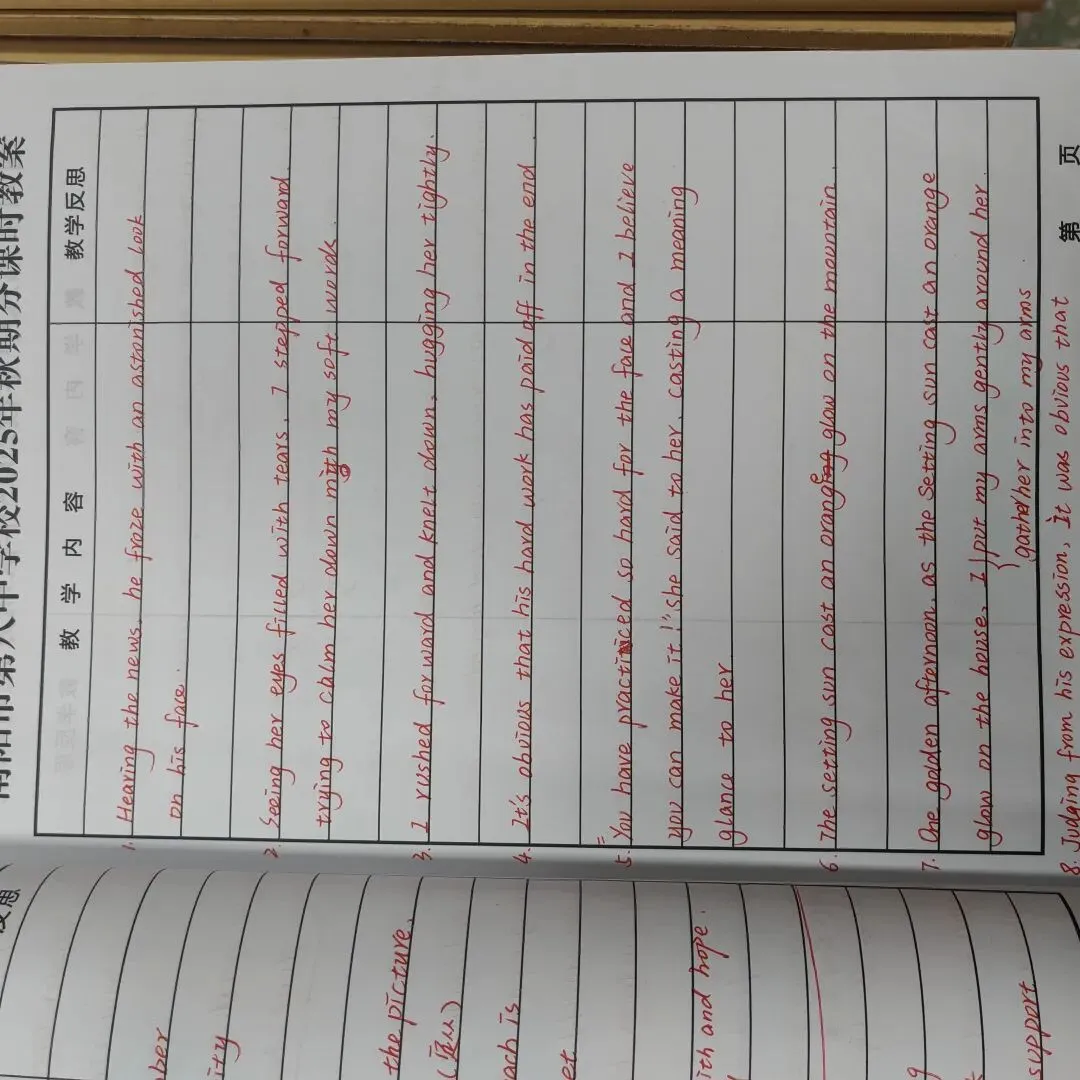 2025年秋期分课时教案
教 学 内 容
教学反思
1. Hearing the news, he froze with an astonished look
on his face.
2. Seeing her eyes filled with tears, I stepped forward.
trying to calm her down with my soft words.
3. I rushed forward and knelt down, hugging her tightly.
4. It's obvious that his hard work has paid off in the end
5. "You have practiced so hard for the face and I believe
you can make it!" she said to her, casting a meaning
glance to her
6. The setting sun cast an orange glow on the mountain.
7. One golden afternoon, as the setting sun cast an orange
glow on the house, I put my arms gently around her.
gather her into my arms
8. Judging from his expression, it was obvious that
第 页
the picture,
ach is
ith and hope.
support